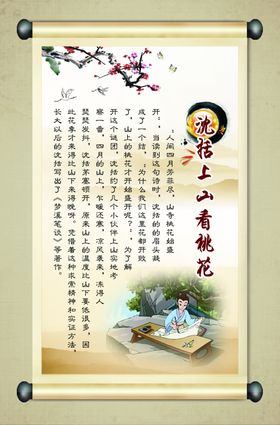 沈括上山看桃花
“人间四月芳菲尽，山寺桃花始盛
开”，当读到这句诗时，沈括的眉头凝
成了一个结，“为什么我们这里花都开败
了，山上的桃花才开始盛开呢？”，为了解
开这个谜团，沈括约了几个小伙伴上山实地考
察一番，四月的山上，乍暖还寒，凉风袭来，冻得人
瑟瑟发抖，沈括茅塞顿开，原来山上的温度比山下要低很多，因
此花季才来得比山下来得晚呀。凭借着这种求索精神和实证方法，
长大以后的沈括写出了《梦溪笔谈》等著作。